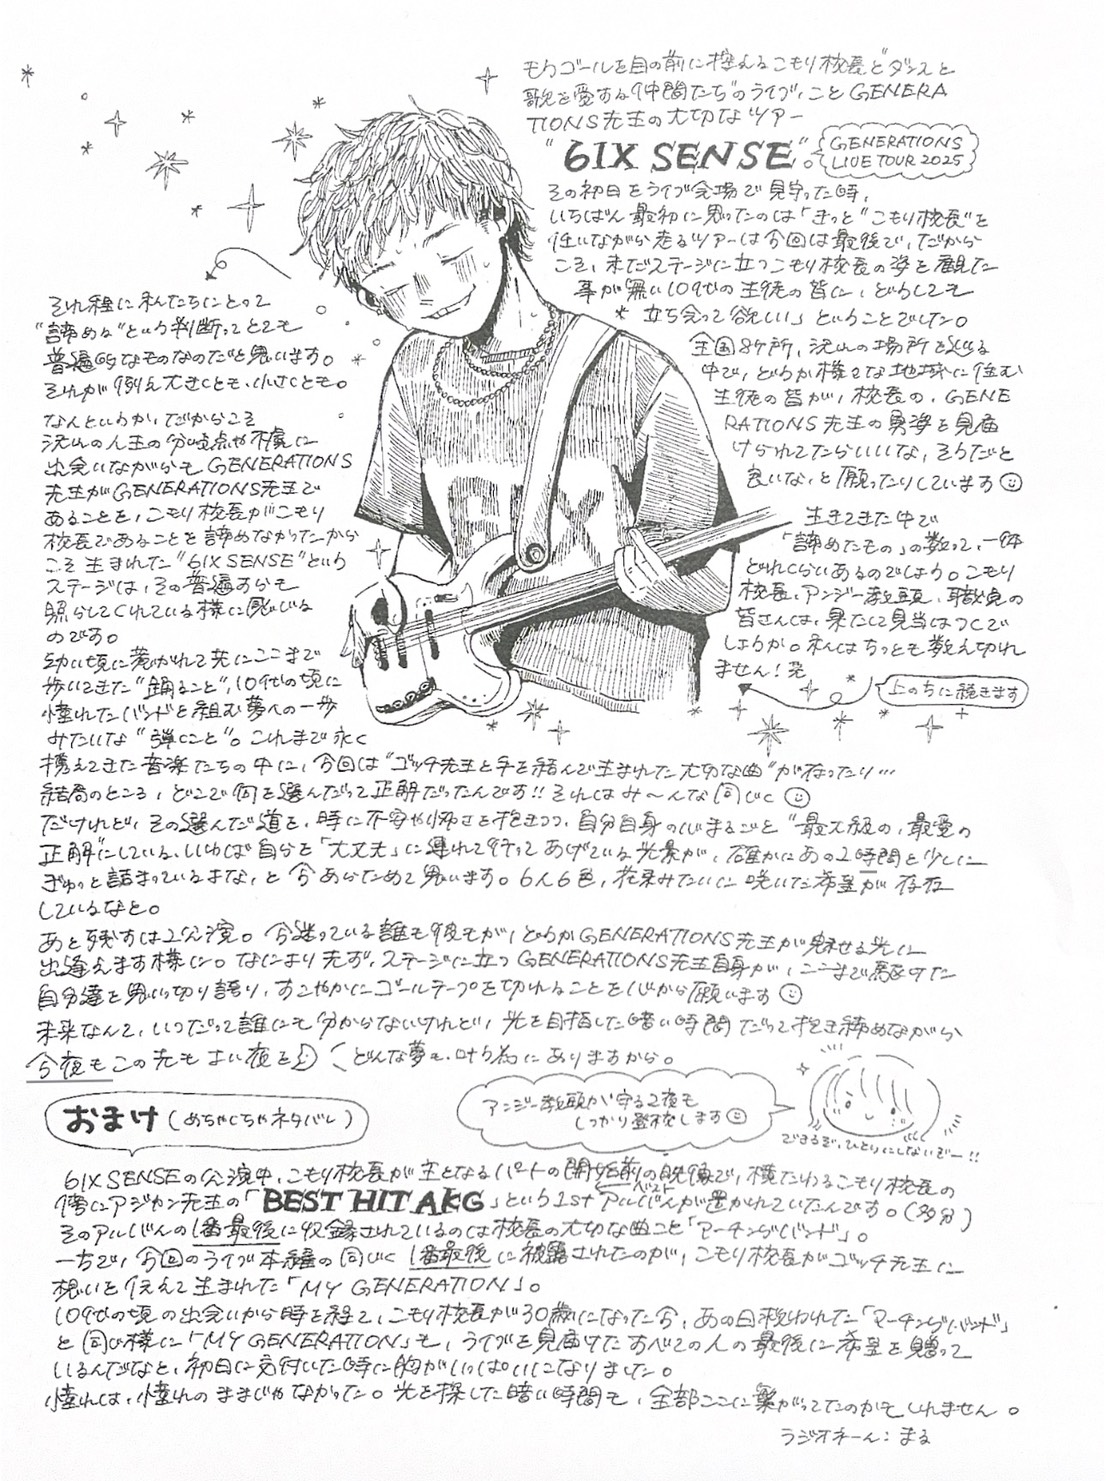 もうゴールを目の前に控えるこもり校長と"ダンスと
歌を愛する仲間たち"のライブ、ことGENERA
TIONS先生の大切なツアー
"6IX SENSE"。
GENERATIONS
LIVE TOUR 2025
その初日をライブ会場で見守った時、
いちばん最初に思ったのは「きっと"こもり校長"を
担いながら走るツアーは今回は最後で、だから
こそ、まだステージに立つこもり校長の姿を観た
事が無い10代の生徒の皆に、どうしても
立ち会って欲しい」ということでした。
全国8ケ所、沢山の場所を巡る
中で、どうか様々な地域に住む
生徒の皆が、校長の、GENE
RATIONS先生の勇姿を見届
けられてたらいいな、そうだと
良いな、と願ったりしています☺
生きてきた中で
「諦めたもの」の数って、一体
どれくらいあるのでしょう。こもり
校長、アンジー教頭、職員の
皆さんは、果たして見当はつくで
しょうか。私はちっとも数え切れ
ません！笑
上のちに続きます
それ程に私たちにとって
"諦める"という判断ってとても
普遍的なものなのだと思います。
それが例え大きくとも、小さくとも。
なんというか、だからこそ
沢山の人生の分岐点や機に
出会いながらもGENERATIONS
先生がGENERATIONS先生で
あることを、こもり校長がこもり
校長であることを諦めなかったから
こそ生まれた"6IX SENSE"という
ステージは、その普遍すらも
照らしてくれている様に感じる
のです。
幼い頃に惹かれて共にここまで
歩いてきた"踊ること"、10代の頃に
憧れたバンドを組む夢への一歩
みたいな"弾くこと"。これまで永く
携えてきた音楽たちの中に、今回は"ゴッチ先生と手を結んで生まれた大切な曲"が在ったり…
結局のところ、どこで何を選んだって正解だったんです!!それはみ〜んな同じく☺
だけれど、その選んだ道を、時に不安や怖さを抱きつつ、自分自身の心まるごと"最大級の、最愛の
正解"にしている、いわば自分を「大丈夫」に連れて行ってあげている光景が、確かにあの2時間と少しに
ぎゅっと詰まっているまな、と今あらためて思います。6人6色、花束みたいに咲いた希望が存在
しているなと。
あと残すは2公演。今迷っている誰も彼もが、どうかGENERATIONS先生が魅せる光に
出逢えます様に。なにより先ず、ステージに立つGENERATIONS先生自身が、ここまで駆けた
自分達を思い切り誇り、すこやかにゴールテープを切れることを心から願います☺
未来なんて、いつだって誰にも分からないけれど、光を目指した暗い時間だって抱き締めながら
今夜もこの先もよい夜を☺ どんな夢も、叶う為にありますから。
アンジー教頭が守る2夜も
しっかり登校します☺
できるぞ、ひとりにしないぞー!!
おまけ(めちゃくちゃネタバレ)
6IX SENSEの公演中、こもり校長が主となるパートの開始前の映像で、横たわるこもり校長の
傍にアジカン先生の「BEST HIT AKG」という1stアルバムが置かれていたんです。(多分)
ベスト
そのアルバムの1番最後に収録されているのは校長の大切な曲こと「マーチングバンド」。
一方で、今回のライブ本編の同じく1番最後に披露されたのが、こもり校長がゴッチ先生に
想いを伝えて生まれた「MY GENERATION」。
10代の頃の出会いから時を経て、こもり校長が30歳になった今、あの日救われた「マーチングバンド」
と同じ様に「MY GENERATION」も、ライブを見届けたすべての人の最後に希望を贈って
いるんだなと、初日に気付いた時に胸がいっぱいになりました。
憧れは、憧れのままじゃなかった。光を探した暗い時間も、全部ここに繋がってたのかもしれません。
ラジオネーム：まる